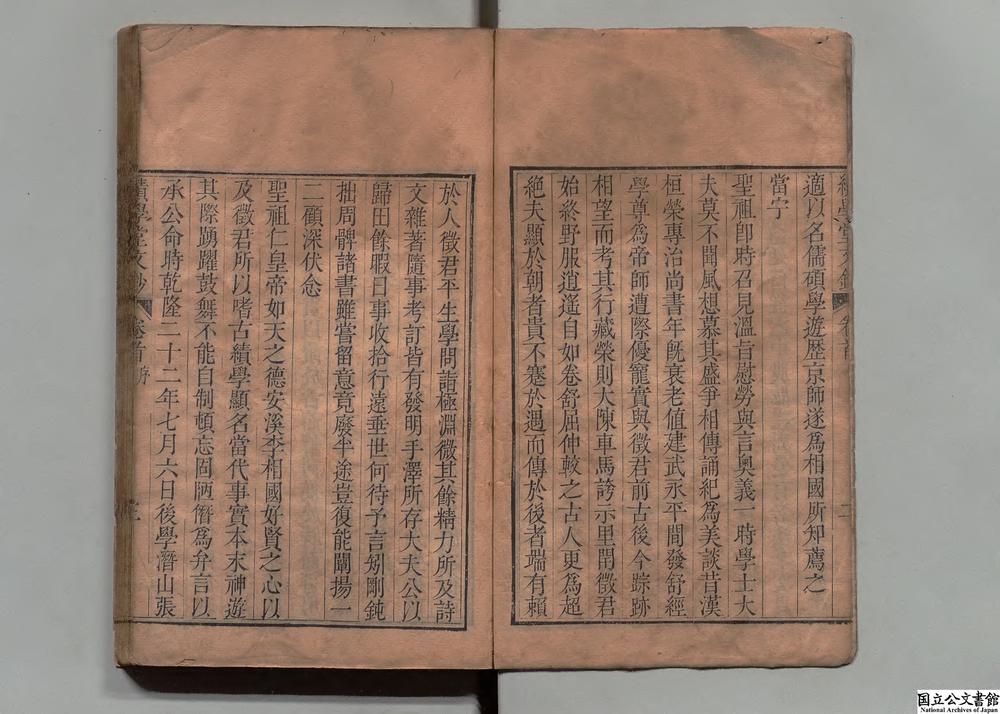 適以名儒碩學遊歷京師遂為相國所知薦之
當宁
聖祖卽時召見溫旨慰勞與言奧義一時學士大
夫莫不聞風想慕其盛爭相傳誦紀為美談昔漢
桓榮專治尚書年旣衰老值建武永平間發舒經
學尊為帝師遭際優寵實與徵君前古後今踪跡
相望而考其行藏榮則大陳車馬誇示里閈徵君
始終野服逍遙自如卷舒屈伸較之古人更為超
絶夫顯於朝者貴不蹇於遇而傳於後者端有賴
於人徵君平生學問詣極淵微其餘精力所及詩
文雜著隨事考訂皆有發明手澤所存大夫公以
歸田餘暇日事收拾行遠垂世何待予言矧剛鈍
拙周髀諸書雖嘗留意竟廢半途豈復能闡揚一
二顧深伏念
聖祖仁皇帝如天之德安溪李相國好賢之心以
及徵君所以嗜古績學顯名當代事實本末神遊
其際踴躍鼓舞不能自制頓忘固陋僭為弁言以
承公命時乾隆二十二年七月六日後學潛山張
績學堂文鈔
卷首 序
国立公文書館
National Archives of Japan